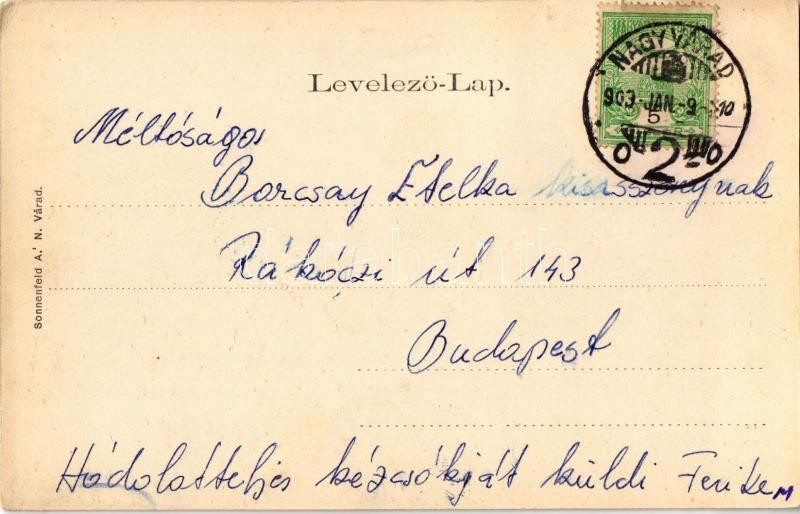 Levelező-Lap.
NAGYVÁRAD
903-JAN.-9
5
2
Méltóságos
Borcsay Etelka kisasszonynak
Rákóczi út 143
Budapest
Hódolatteljes kézcsókját küldi Ferike
Sonnenfeld A. N. Várad.
darabanth